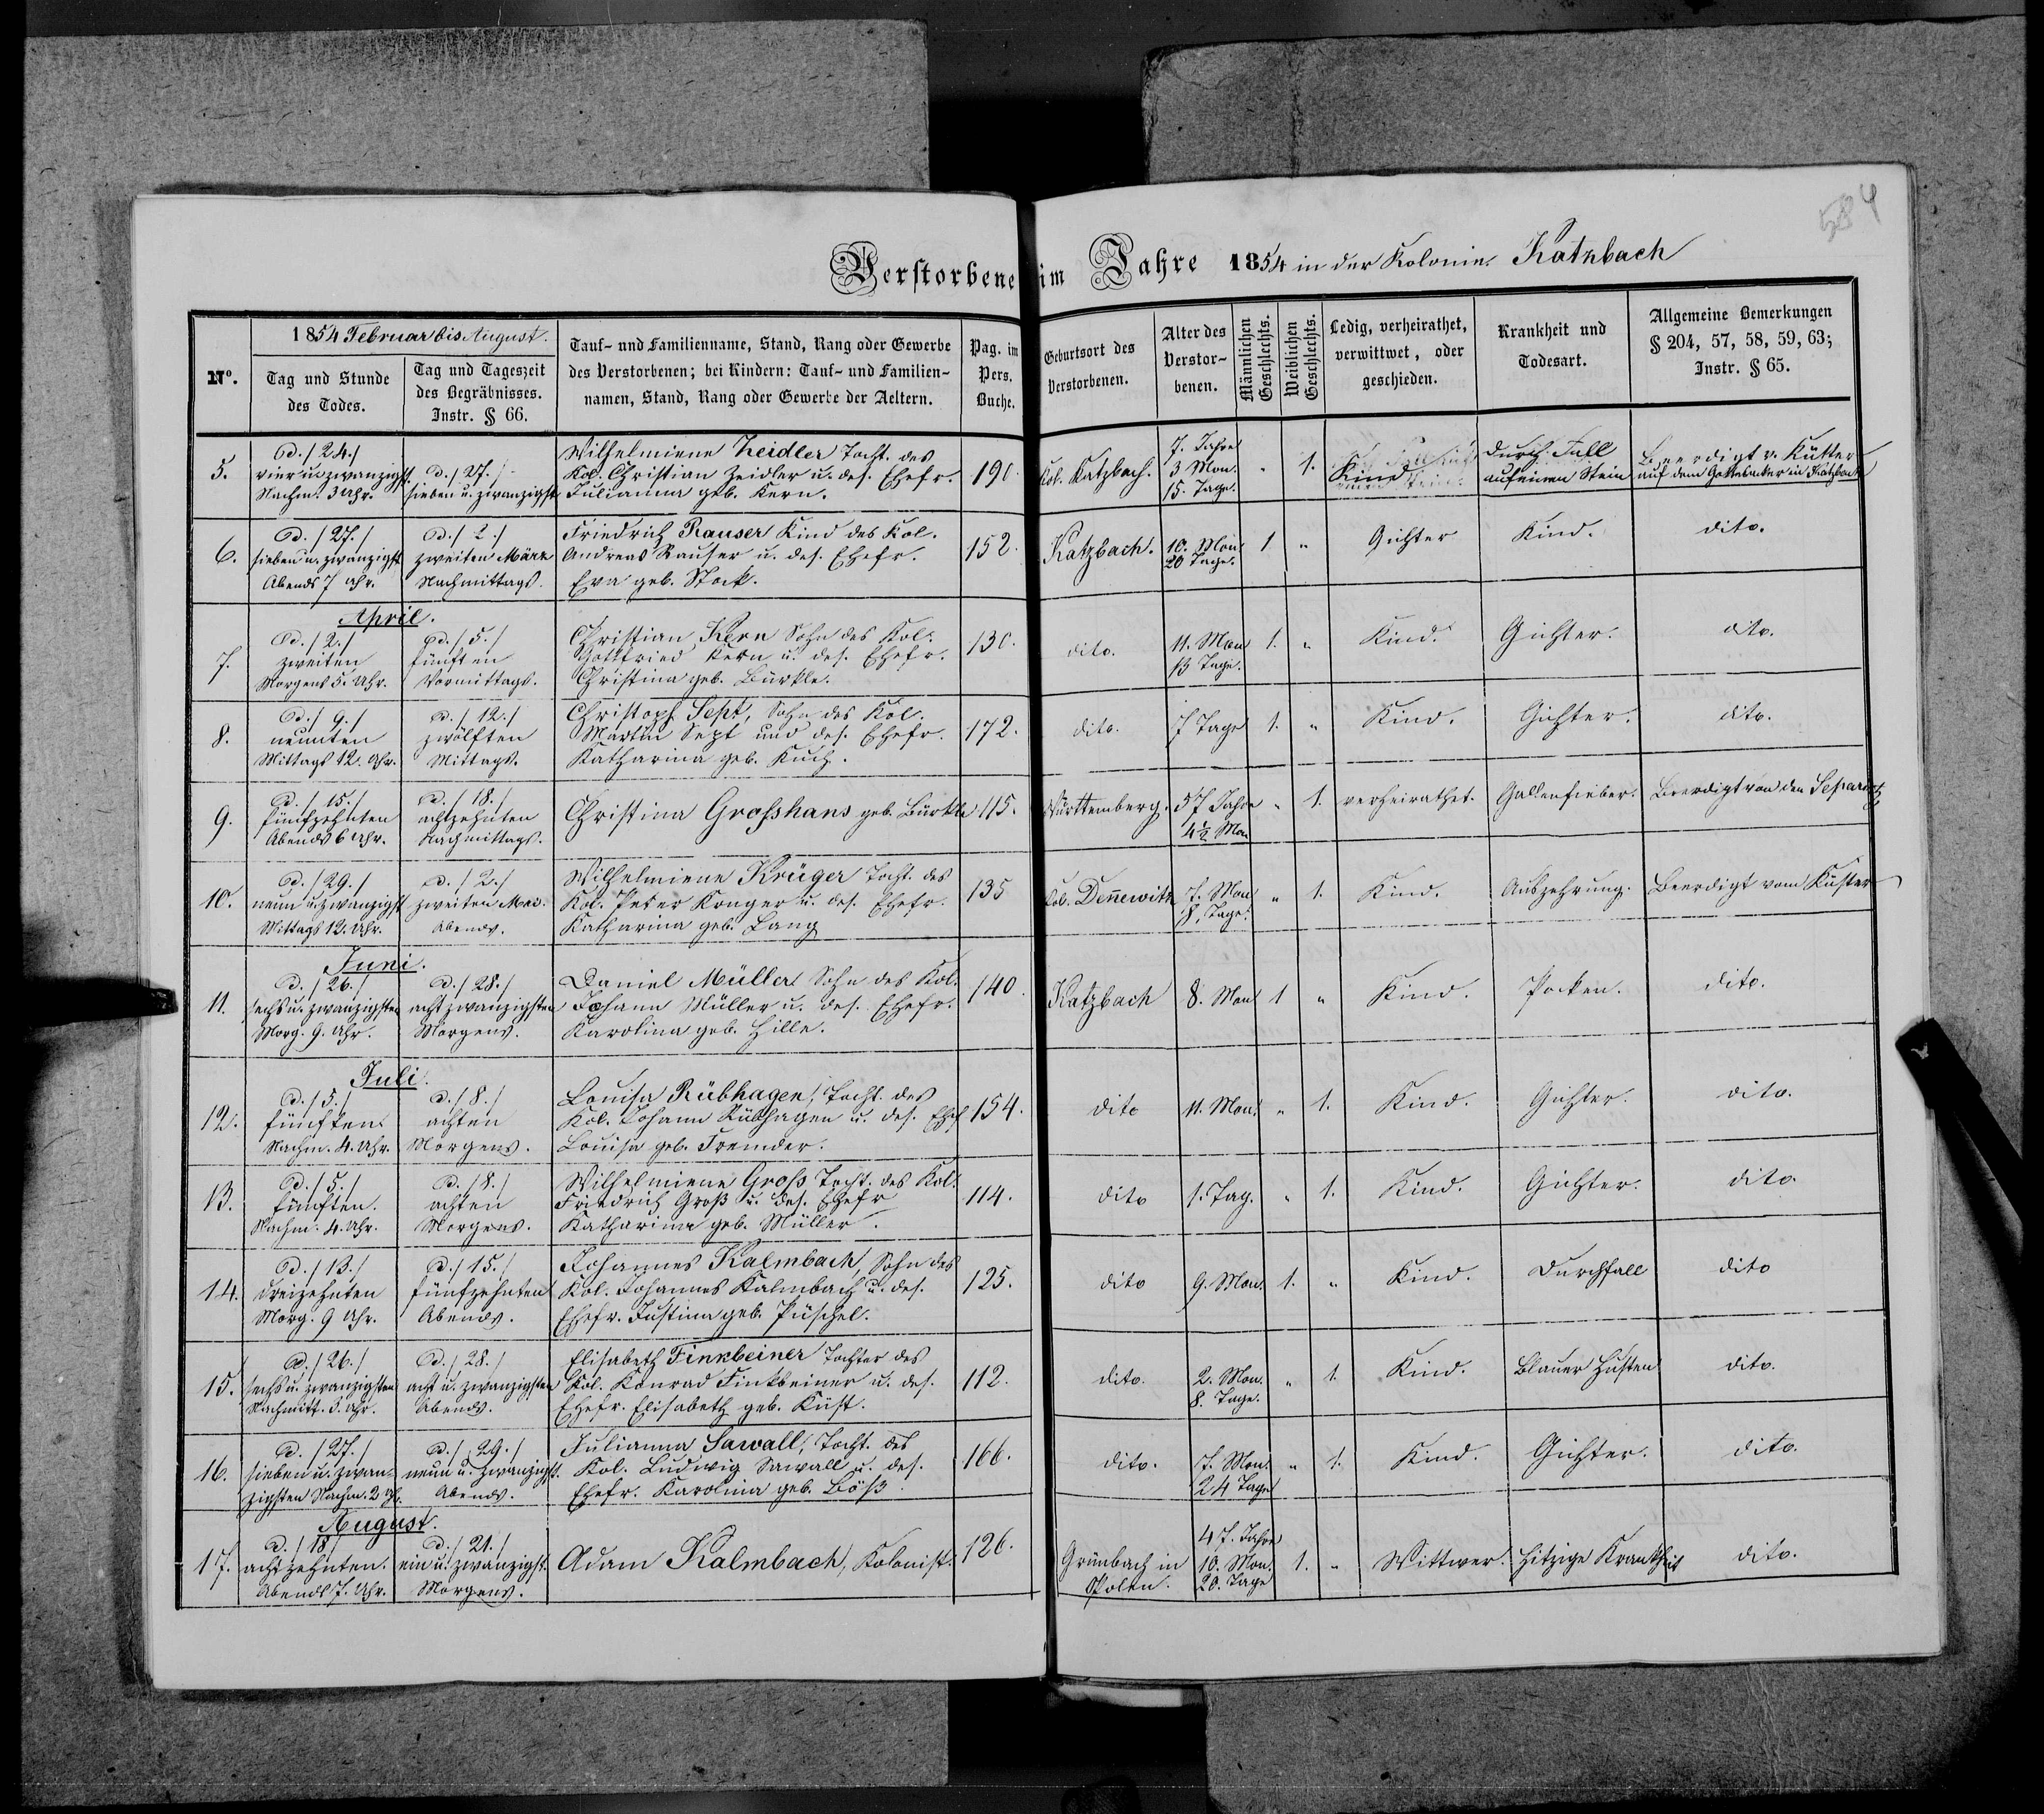 584
Verstorbene im Jahre 1854 in der Kolonie Katzbach
1854 Februar bis August.
No.
Tag und Stunde
des Todes.
Tag und Tageszeit
des Begräbnisses.
Instr. § 66.
Tauf- und Familienname, Stand, Rang oder Gewerbe
des Verstorbenen; bei Kindern: Tauf- und Familien-
namen, Stand, Rang oder Gewerbe der Aeltern.
Pag. im
Pers.
Buche.
Geburtsort des
Verstorbenen.
Alter des
Verstor-
benen.
Männlichen
Geschlechts.
Weiblichen
Geschlechts.
Ledig, verheirathet,
verwittwet, oder
geschieden.
Krankheit und
Todesart.
Allgemeine Bemerkungen
§ 204, 57, 58, 59, 63;
Instr. § 65.
5.
d. / 24. /
vier u. zwanzigst.
Nachm. 3 Uhr.
d. / 27. /
sieben u. zwanzigst.
Wilhelmiene Zeidler Tocht. des
Kol. Christian Zeidler u. des. Ehefr.
Julianna geb. Kern.
190.
Kol. Katzbach.
7. Jahre
3 Mon.
15. Tage.
" 1.
Kind
durch Fall
auf einen Stein
Beerdigt v. Küster
auf dem Gottesacker in Katzbach
6.
d. / 27. /
sieben u. zwanzigst.
Abends 7 Uhr.
d. / 2. /
zweiten März
Nachmittags.
Friedrich Rauser Kind des Kol.
Andreas Rauser u. des. Ehefr.
Eva geb. Stock.
152.
Katzbach.
10. Mon.
20 Tage.
1 "
Gichter
Kind.
dito.
April.
7.
d. / 2. /
zweiten
Morgens 5. Uhr.
d. / 5. /
fünften
Vormittags.
Christian Kern Sohn des Kol.
Gottfried Kern u. des. Ehefr.
Christina geb. Bürkle.
130.
dito.
11. Mon
13 Tage.
1. "
Kind.
Gichter.
dito.
8.
d. / 9. /
neunten
Mittags 12. Uhr.
d. / 12. /
zwölften
Mittags.
Christoph Sept, Sohn des Kol.
Martin Sept und des. Ehefr.
Katharina geb. Kuch.
172.
dito.
7 Tage
1. "
Kind.
Gichter.
dito.
9.
d. / 15. /
fünfzehnten
Abends 6 Uhr.
d. / 18. /
achtzehnten
Nachmittags.
Christina Grosshans geb. Bürkle
115.
Württemberg.
57 Jahre
4½ Mon
" 1.
verheirathet.
Gallenfieber.
Beerdigt von den Separat
10.
d. / 29. /
neun u. zwanzigst
Mittags 12. Uhr.
d. / 2. /
zweiten Mai.
Abends.
Wilhelmiene Krüger Tocht. des
Kol. Peter Krüger u. des. Ehefr.
Katharina geb. Lang
135
Kol. Deñewitz
7. Mon
8. Tage.
" 1.
Kind.
Auszehrung.
Beerdigt vom Küster
Juni.
11.
d. / 26. /
sechs u. zwanzigsten
Morg. 9. Uhr.
d. / 28. /
acht zwanzigsten
Morgens.
Daniel Müller Sohn des Kol.
Johann Müller u. des. Ehefr.
Karolina geb. Hille.
140.
Katzbach
8. Mon
1 "
Kind.
Pocken.
dito.
Juli.
12.
d. / 5. /
fünften
Nachm. 4. Uhr.
d. / 8. /
achten
Morgens.
Louisa Rübhagen, Tocht. des
Kol. Johann Rübhagen u. des. Ehef
Louisa geb. Fremder.
154.
dito
11. Mon.
" 1.
Kind.
Gichter.
dito.
13.
d. / 5. /
fünften.
Nachm. 4. Uhr.
d. / 8. /
achten
Morgens.
Wilhelmiene Gross Tocht. des Kol.
Friedrich Groß u. des. Ehefr
Katharina geb. Müller.
114.
dito
1. Tag.
" 1.
Kind.
Gichter.
dito.
14.
d. / 13. /
dreizehnten
Morg. 9 Uhr.
d. / 15. /
fünfzehnten
Abends.
Johannes Kalmbach, Sohn des
Kol. Johannes Kalmbach u. des.
Ehefr. Justina geb. Püschel.
125.
dito
9. Mon.
1. "
Kind.
Durchfall
dito
15.
d. / 26. /
sechs u. zwanzigsten
Nachmitt. 5. Uhr.
d. / 28. /
acht u. zwanzigsten
Abends.
Elisabeth Finkbeiner Tochter des
Kol. Konrad Finkbeiner u. des.
Ehefr. Elisabeth geb. Küst.
112.
dito.
2. Mon.
8. Tage.
" 1.
Kind.
Blauer Husten
dito.
16.
d. / 27. /
sieben u. zwan-
zigsten Nachm. 2 Uhr.
d. / 29. /
neun u. zwanzigst.
Abends.
Julianna Sawall, Tocht. des
Kol. Ludwig Sawall u. des.
Ehefr. Karolina geb. Böß.
166.
dito.
7. Mon.
24 Tage
" 1.
Kind.
Gichter.
dito.
August.
17.
d. / 18 /
achtzehnten.
Abends 7. Uhr.
d. / 21. /
ein u. zwanzigst.
Morgens.
Adam Kalmbach, Kolonist.
126.
Grünbach in
Polen.
47. Jahre
10. Mon.
20. Tage
1. "
Wittwer.
Hitzige Krankheit
dito.